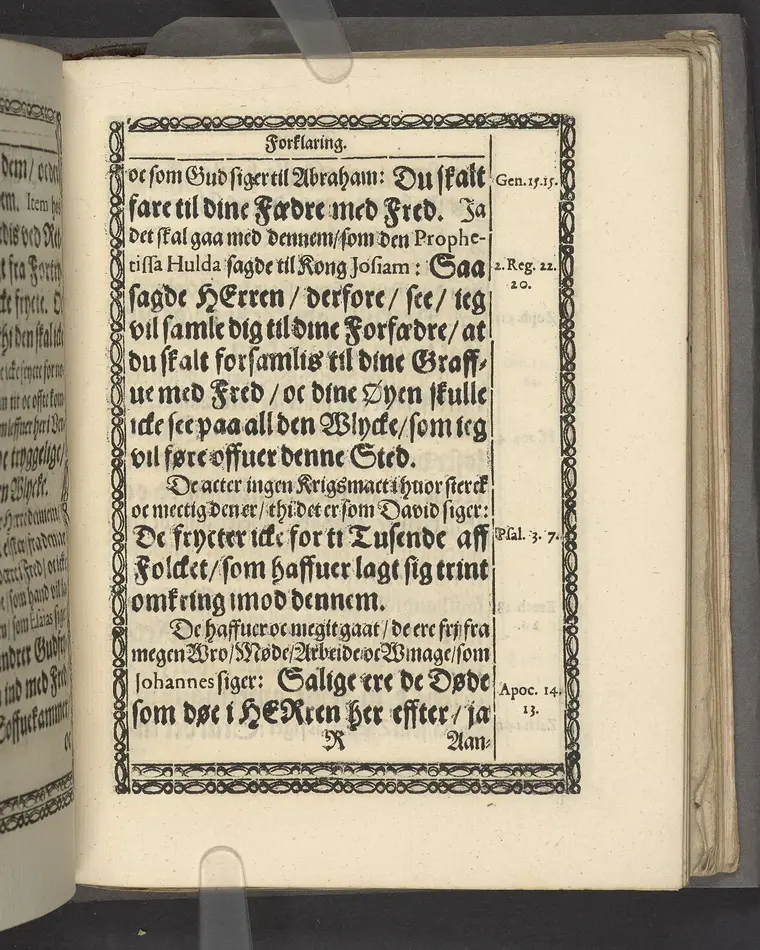 Forklaring.
oc som Gud siger til Abraham: Du skalt
fare til dine Fædre med Fred. Ja
det skal gaa med dennem/som den Prophe-
tissa Hulda sagde til Kong Josiam: Saa
sagde HErren / derfore / see / ieg
vil samle dig til dine Forfædre/ at
du skalt forsamlis til dine Graff-
ue med Fred / oc dine Øyen skulle
icke see paa all den Wlycke/som ieg
vil føre offuer denne Sted.
De acter ingen Krigsmact ihuor sterck
oc mectig den er/ thi det er som David siger:
De frycter icke for ti Tusende aff
Folcket/som haffuer lagt sig trint
omkring imod dennem.
De haffuer oc megit gaat/de ere frj fra
megen Wro/Møde/Arbeide oc Wmage/som
Johannes siger: Salige ere de Døde
som døe i HERren her effter/ ja
R Aan-
Gen. 15.15.
2. Reg. 22.
20.
Psal. 3. 7.
Apoc. 14.
13.
dem/
Item
ved
fra
frycte.
tryggelige/
Wlycke.
som Elias
ind med Fred
Soffuekammer
oc